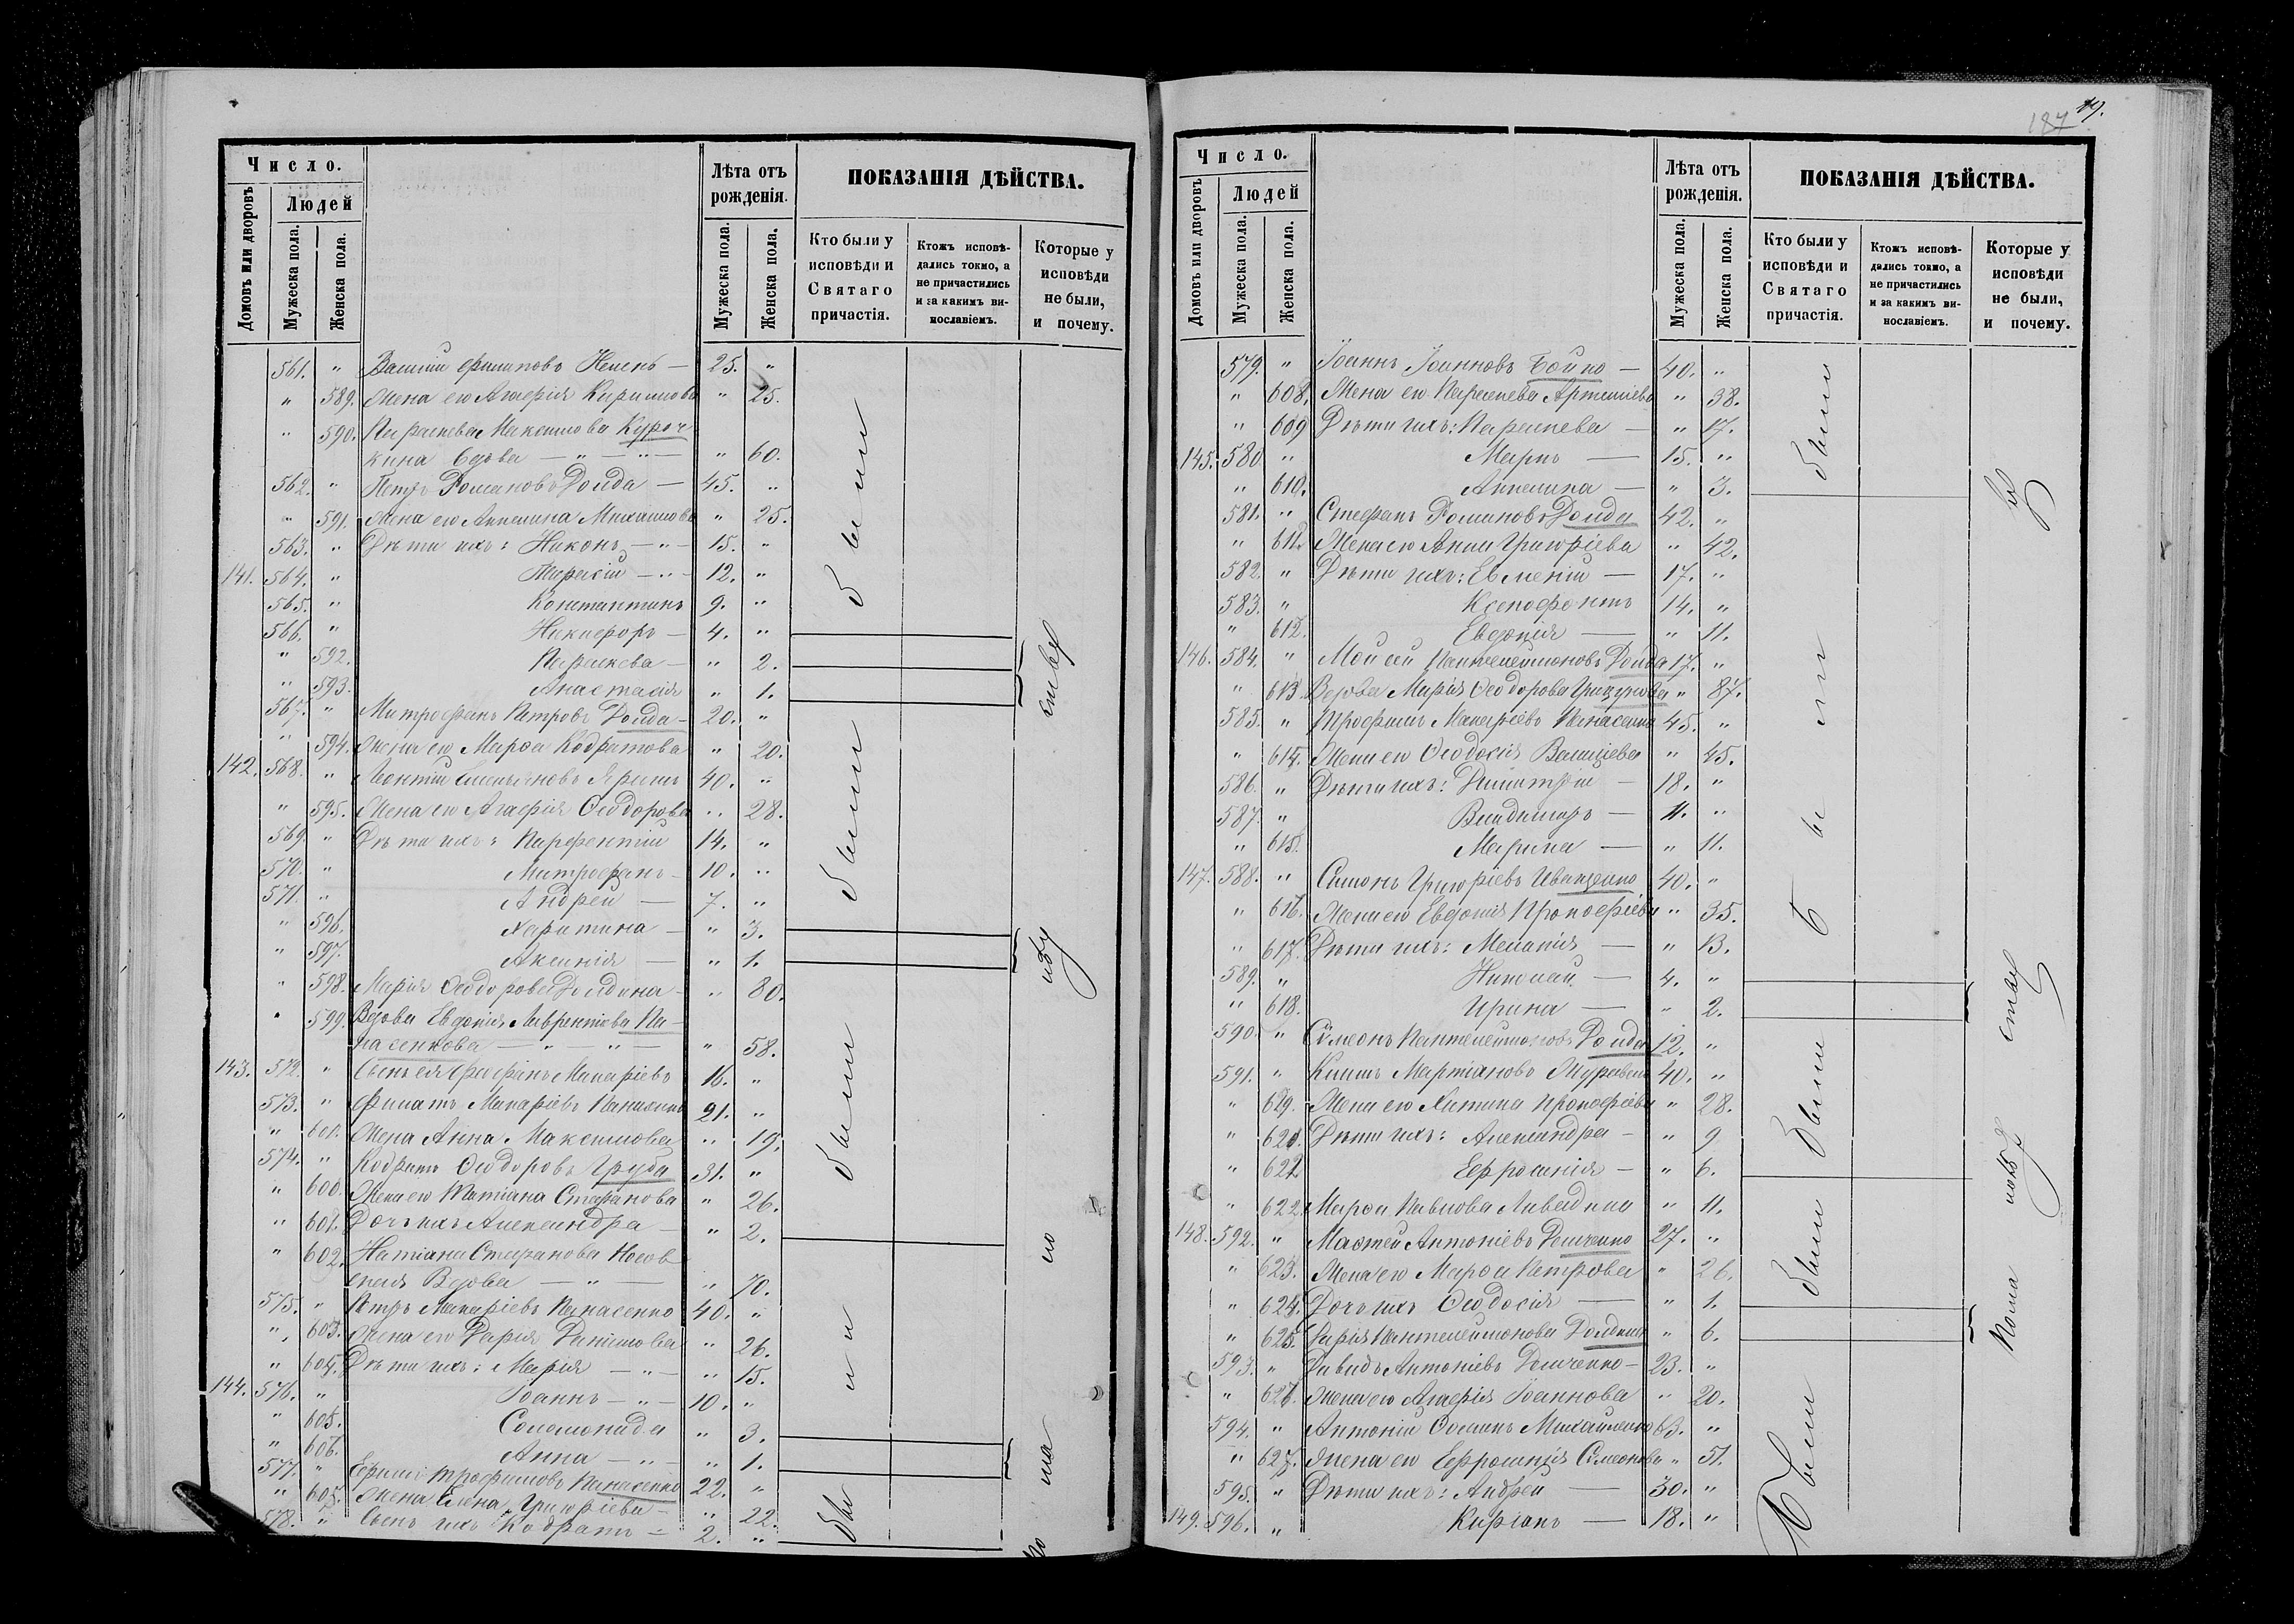 Число.
Людей
Домовъ или дворовъ
Мужеска пола.
Женска пола.
Лѣта отъ рожденія.
Мужеска пола.
Женска пола.
ПОКАЗАНІЯ ДѢЙСТВА.
Кто были у исповѣди и Святаго причастія.
Ктожъ исповѣдались токмо, а не причастились и за какимъ винословіемъ.
Которые у исповѣди не были, и почему.
561. " Василій Филиповъ — 25. "
" 589. Жена его Агафія Кирилова " 25.
" 590. Параскева Максимова Куроч
кина Вдова — " — " 60.
562. " Петръ Романовъ Доида — 45. "
" 591. Жена его Акилина Михаилова " 25.
563. " Дѣти ихъ: Никонъ — " — 15. "
141. 564. " Тарасій — " — 12. "
565. " Константинъ 9. "
566. " Никифоръ — 4. "
" 592. Параскева — " 2.
" 593. Анастасія " 1.
567. " Митрофанъ Петровъ Доида — 20. "
" 594. Жена его Марѳа Кодратова " 20.
142. 568. " Леонтій Емельяновъ 40. "
" 595. Жена его Агафія Ѳеодорова " 28.
569. " Дѣти ихъ: Парфентій 14. "
570. " Митрофанъ — 10. "
571. " Андрей — 7. "
" 596. Харитина — " 3.
" 597. Аксинія — " 1.
" 598. Марія Ѳеодорова Доидина — " 80.
" 599. Вдова Евдокія Лаврентіева Па-
насенкова — " — " — " 58.
143. 572. " Сынъ ея Феофанъ Макаріевъ 16. "
573. " Филатъ Макаріевъ Панасенко 21. "
" 601. Жена Анна Максимова " 19.
574. " Кодратъ Ѳеодоровъ Груба 31. "
" 600. Жена его Татіана Стефанова " 26.
" 601. Дочь ихъ Александра — " 2.
" 602. Татіана Стефанова Носов
ская Вдова — " — " 70.
575. " Петръ Макаріевъ Панасенко 40. "
" 603. Жена его Дарія Даніилова " 26.
" 604. Дѣти ихъ: Марія — " — " 15.
144. 576. " Іоаннъ — " — 10. "
" 605. Соломонида " 3.
" 606. Анна — " — " 1.
577. " Ефимъ Трофимовъ Панасенко 22. "
" 605. Жена Елена Григоріева — " 22.
578. " Сынъ ихъ Кодратъ — 2. "
были
были
были
187 19.
Число.
Людей
Домовъ или дворовъ
Мужеска пола.
Женска пола.
Лѣта отъ рожденія.
Мужеска пола
Женска пола.
ПОКАЗАНІЯ ДѢЙСТВА.
Кто были у исповѣди и Святаго причастія.
Ктожъ исповѣдались токмо, а не причастились и за какимъ винословіемъ.
Которые у исповѣди не были, и почему.
579. " Іоаннъ Іоанновъ Бойко — 40. "
" 608. Жена его Параскева Артеміева " 38.
" 609 Дѣти ихъ: Параскева — " 17.
145. 580. " Маркъ — 15. "
" 610. Акилина — " 3.
581. " Стефанъ Романовъ Доида 42. "
" 611. Жена его Анна Григоріева " 42.
582. " Дѣти ихъ: Евменій — 17. "
583. " Ксенофонтъ 14. "
" 612. Евдокія — " 11.
146. 584. " Мойсей Пантелеймоновъ Доида 17. "
" 613. Вдова Марія Ѳеодорова Грицунова " 87.
585. " Трофимъ Макаріевъ Панасенко 45. "
" 614. Жена его Ѳеодосія Василіева " 45.
586. " Дѣти ихъ: Димитрій — 18. "
587. " Владимиръ — 11. "
" 615. Марина — " 11.
147. 588. " Симонъ Григоріевъ 40. "
" 616. Жена его Евдокія Прокофіева " 35.
" 617. Дѣти ихъ: Меланія — " 13.
589. " Николай — 4. "
" 618. Ирина — " 2.
590. " Сѵмеонъ Пантелеймоновъ Доида 12. "
591. " Климъ Мартіановъ 40. "
" 619. Жена его Прокофіева " 28.
" 620. Дѣти ихъ: Александра — " 9
" 621 Ефросинія — " 6.
" 622. Марѳа Павлова " 11.
148. 592. " Матѳей Антоніевъ Демченко 27. "
" 623. Жена его Марѳа Петрова " 26.
" 624. Дочь ихъ Ѳеодосія — " 1.
" 625. Марія Пантелеймонова Доидина " 6.
593. " Давидъ Антоніевъ Демченко — 23. "
" 626. Жена его Агафія Іоаннова " 20.
594. " Антоній Михайленко 63. "
" 627. Жена его Ефросинія Сѵмеонова " 51.
595. " Дѣти ихъ: Андрей — 30. "
149. 596. " Киріанъ — 18. "
были
были
были
были
Были